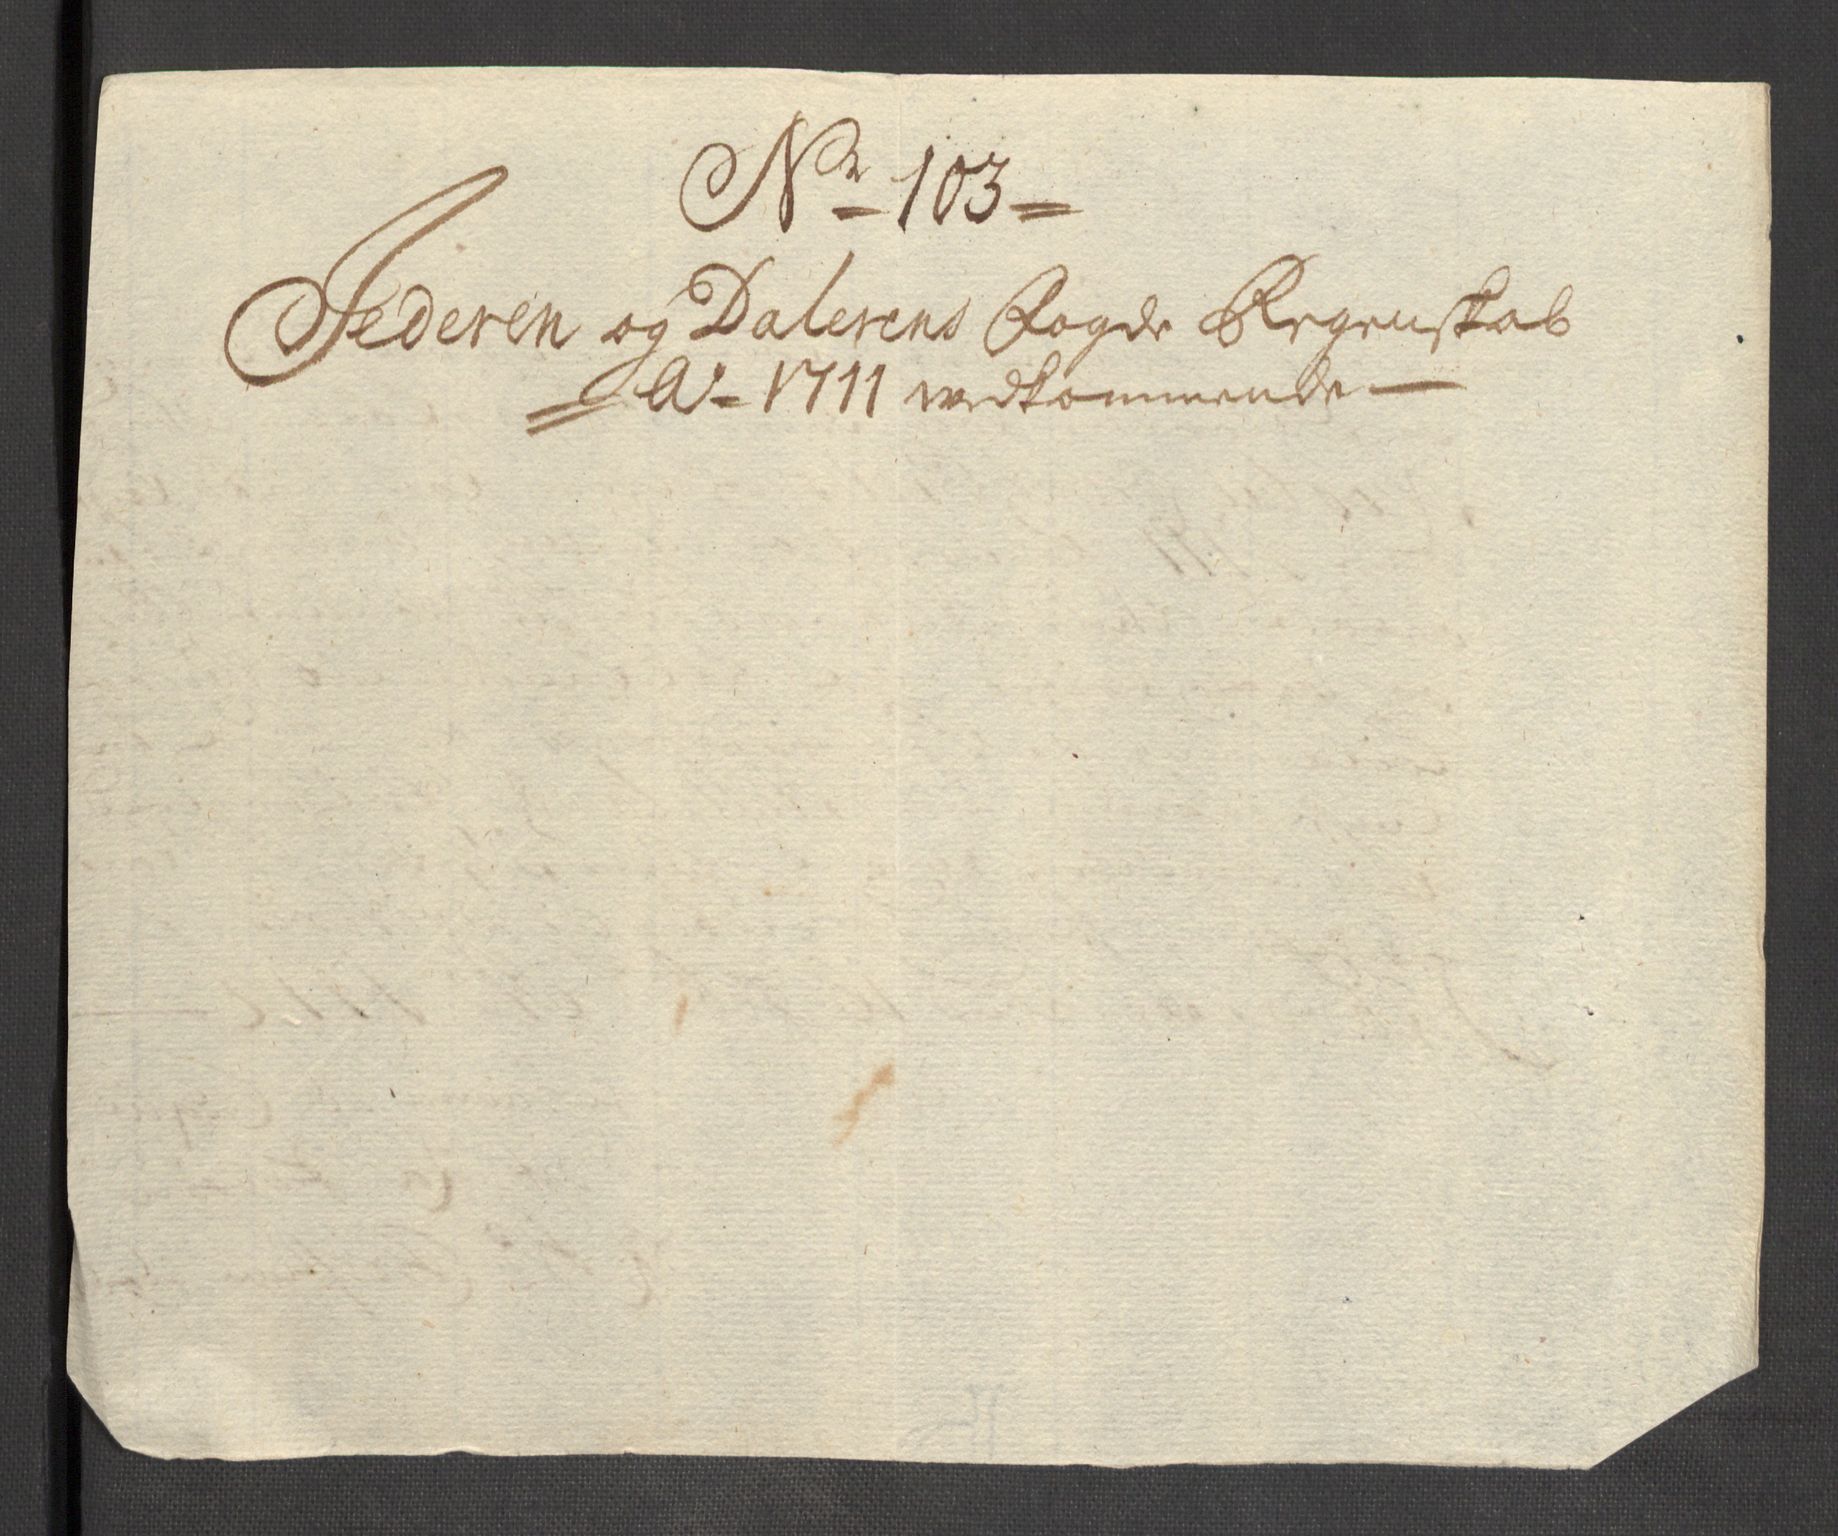 Nr 103
Jederen og Dalerens Fogde Regenskab
Ao 1711 vedkommende